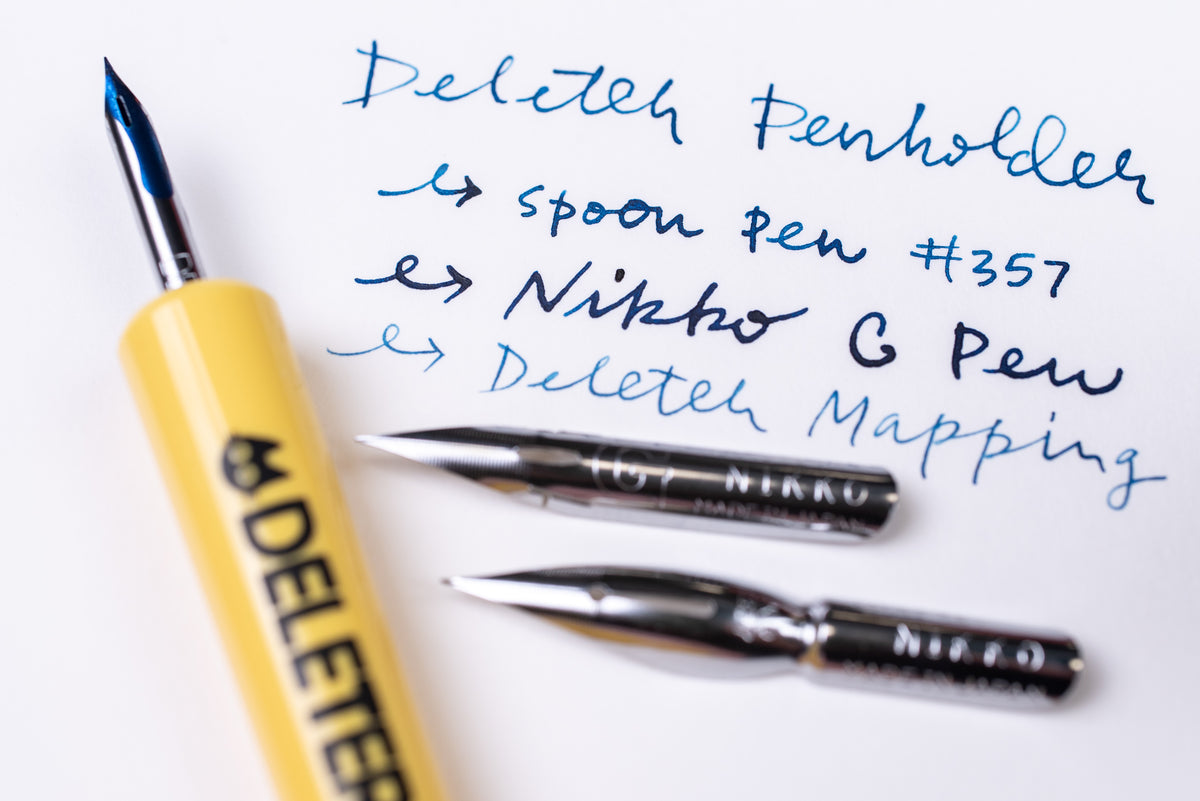 Deleter Penholder
↪ spoon pen #357
↪ Nikko G Pen
↪ Deleter Mapping
G NIKKO
MADE IN JAPAN
NIKKO
MADE IN JAPAN
DELETER